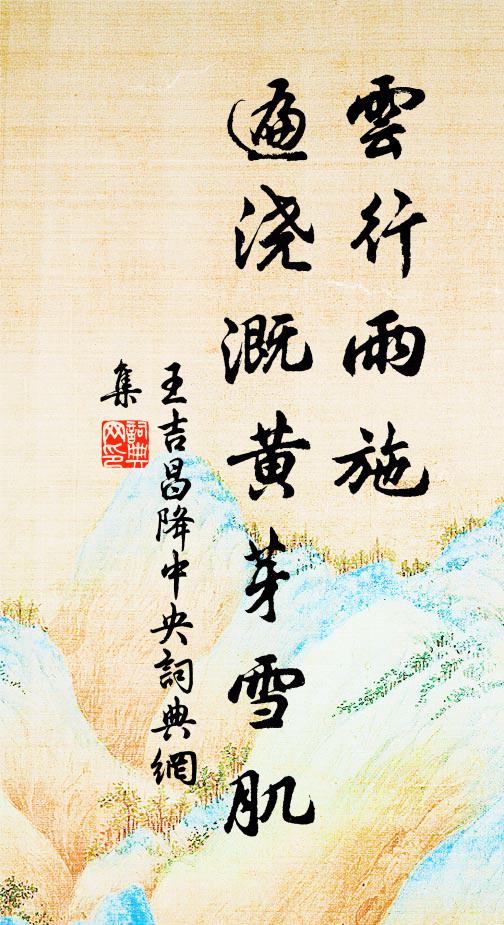 雲行雨施
遍浇溉黄芽雪肌
王吉昌降中央詞典網
集
詞典
网印